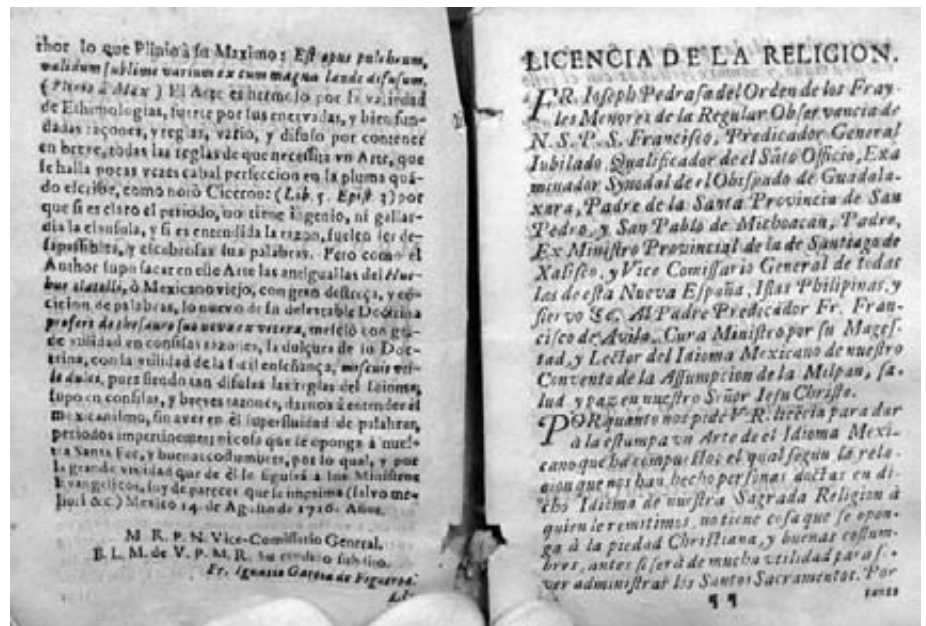 thor lo que Plinio à su Maximo: Est opus pulchrum,
validum sublime varium ex cum magna laude difusum,
(Plinio à Max) El Arte es hermoso por la variedad
de Ethimologias, fuerte por sus enervadas, y bien fun-
dadas razones, y reglas, vario, y difuso por contener
en breve, todas las reglas de que necessita vn Arte, que
se halla pocas vezes cabal perfeccion en la pluma quã-
do escribe, como notò Ciceron: (Lib. 5. Epist. 3) por
que si es claro el periodo, no tiene ingenio, ni gallar-
dia la clausula, y si es entendida la razon, suelen ser de-
sapassibles, y escabrosas sus palabras. Pero como el
Author supo sacar en este Arte las antiguallas del
ò Mexicano viejo, con gran destreça, y cõ-
cicion de palabras, lo nuevo de su delectable Doctrina
profert de thesauro suo nova et vetera, mescló con grã-
de vtilidad en consisas razones, la dulçura de su Doc-
trina, con la vtilidad de la facil enseñança, miscuit vti-
le dulci, pues siendo tan difusas las reglas del Idioma,
supo en consisas, y breves razones, darnos à entender el
mexicanismo, sin aver en èl superfluidad de palabras,
periodos impertinentes; ni cosa que se oponga à nues-
tra Santa Fee, y buenas costumbres, por lo qual, y por
la grande vtilidad que de èl se seguirà à los Ministros
Evangelicos, soy de parecer que se imprima (salvo me-
jori &c.) Mexico 14. de Agosto de 1716. Años.
M. R. P. N. Vice-Comissario General.
B. L. M. de V. P. M. R. Su subdito.
Fr. Ignacio Garcia de Figueroa.
LICENCIA DE LA RELIGION.
FR. Ioseph Pedrasa del Orden de los Fray-
les Menores de la Regular Observancia de
N. S. P. S. Francisco, Predicador General
Iubilado, Qualificador de el Sãto Officio, Exa
minador Synodal de el Obispado de Guadala-
xara, Padre de la Santa Provincia de San
Pedro, y San Pablo de Michoacan, Padre,
Ex Ministro Provincial de la de Santiago de
Xalisco, y Vice Comissario General de todas
las de esta Nueva España, Islas Philipinas, y
siervo &c. Al Padre Predicador Fr. Fran-
cisco de Avila, Cura Ministro por su Mages-
tad, y Lector del Idioma Mexicano de nuestro
Convento de la Assumpcion de la Milpan, sa-
lud y paz en nuestro Señor Iesu Christo.
POR quanto nos pide V. R. licecia para dar
à la estampa vn Arte de el Idioma Mexi-
cano que ha compuesto; el qual segun la rela-
cion que nos han hecho personas doctas en di-
cho Idioma de nuestra Sagrada Religion à
quien le remitimos, no tiene cosa que se opon-
ga à la piedad Christiana, y buenas costum-
bres, antes si serà de mucha vtilidad para
ver administrar los Santos Sacramentos. Por
¶ ¶